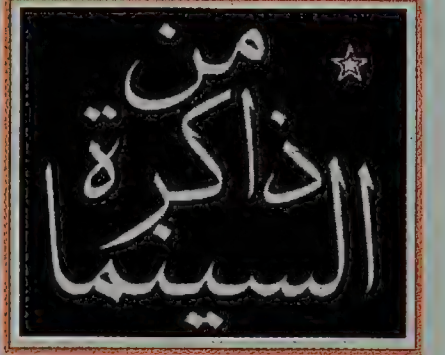 من
ذاكرة
السينما